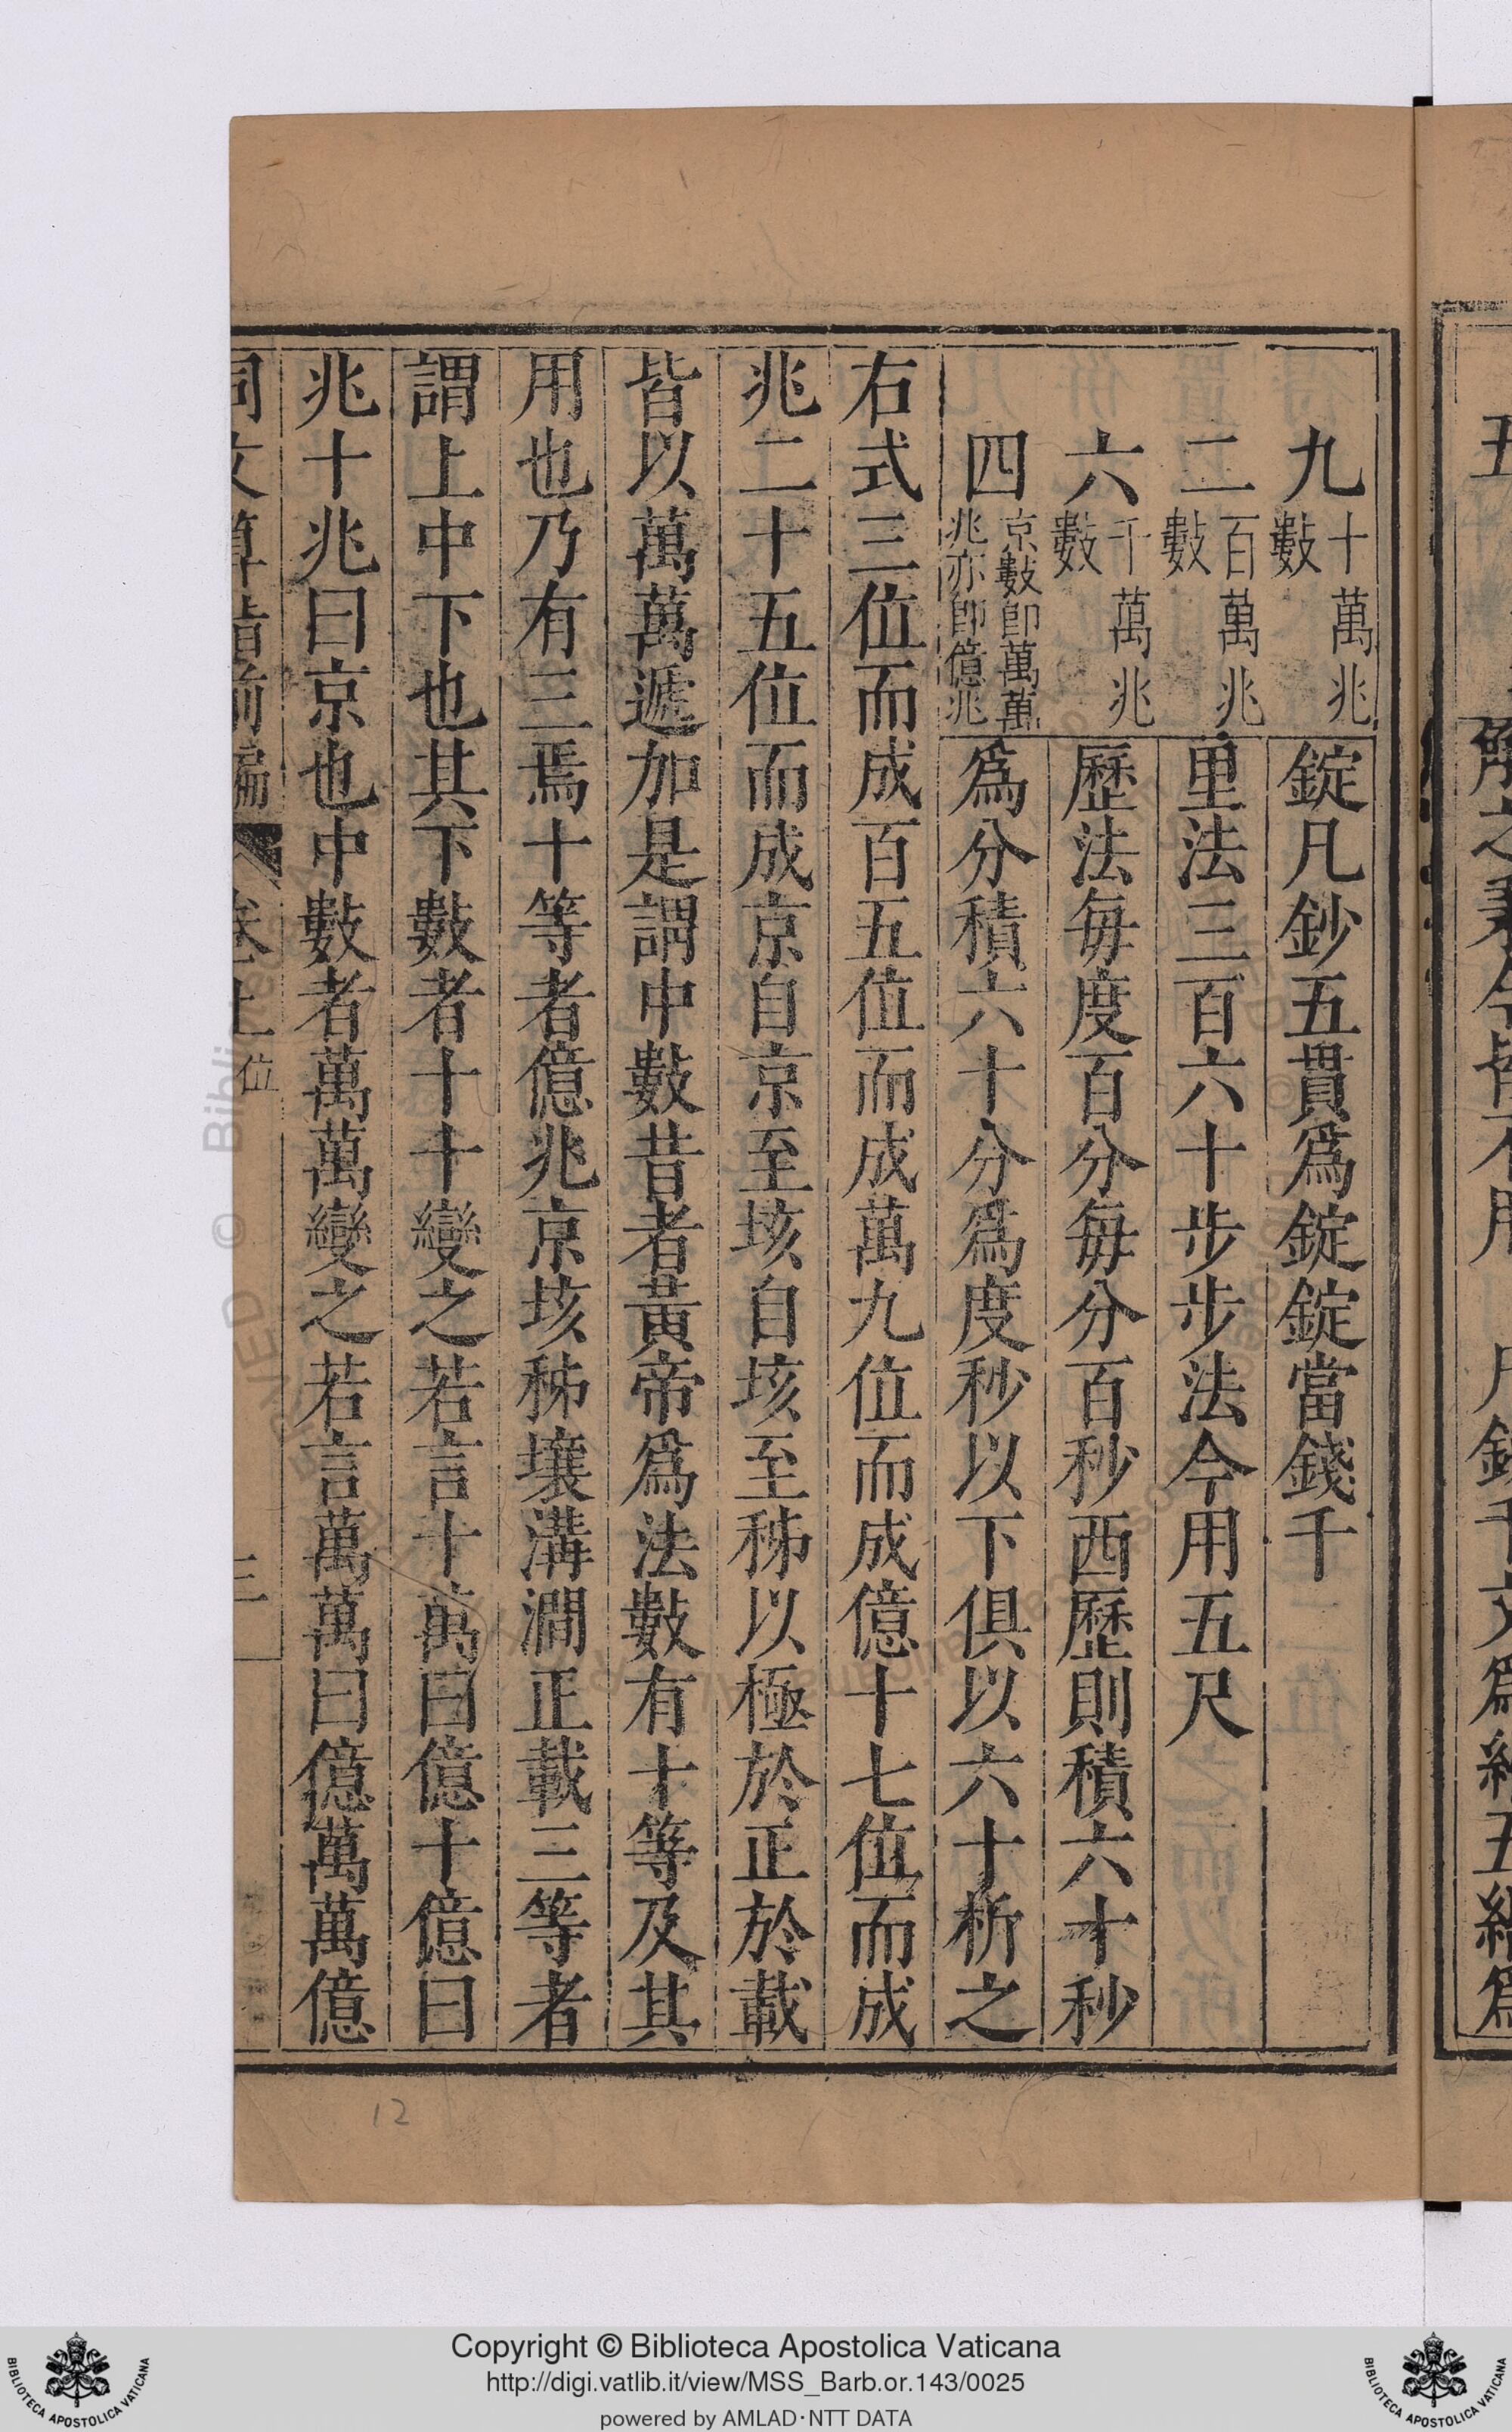 九十萬兆數
錠凡鈔五貫爲錠錠當錢千
二百萬兆數
里法三百六十步步法今用五尺
六千萬兆數
歷法每度百分每分百秒西歷則積六十秒
四京數即萬萬兆亦即億兆
爲分積六十分爲度秒以下俱以六十析之
右式三位而成百五位而成萬九位而成億十七位而成
兆二十五位而成京自京至垓自垓至秭以極於正於載
皆以萬萬遞加是謂中數昔者黃帝爲法數有十等及其
用也乃有三焉十等者億兆京垓秭壤溝澗正載三等者
謂上中下也其下數者十十變之若言十萬曰億十億曰
兆十兆曰京也中數者萬萬變之若言萬萬曰億萬萬億
同文算指前編 卷上 位 三
12
Copyright © Biblioteca Apostolica Vaticana
http://digi.vatlib.it/view/MSS_Barb.or.143/0025
powered by AMLAD·NTT DATA
BIBLIOTECA APOSTOLICA VATICANA
BIBLIOTECA APOSTOLICA VATICANA